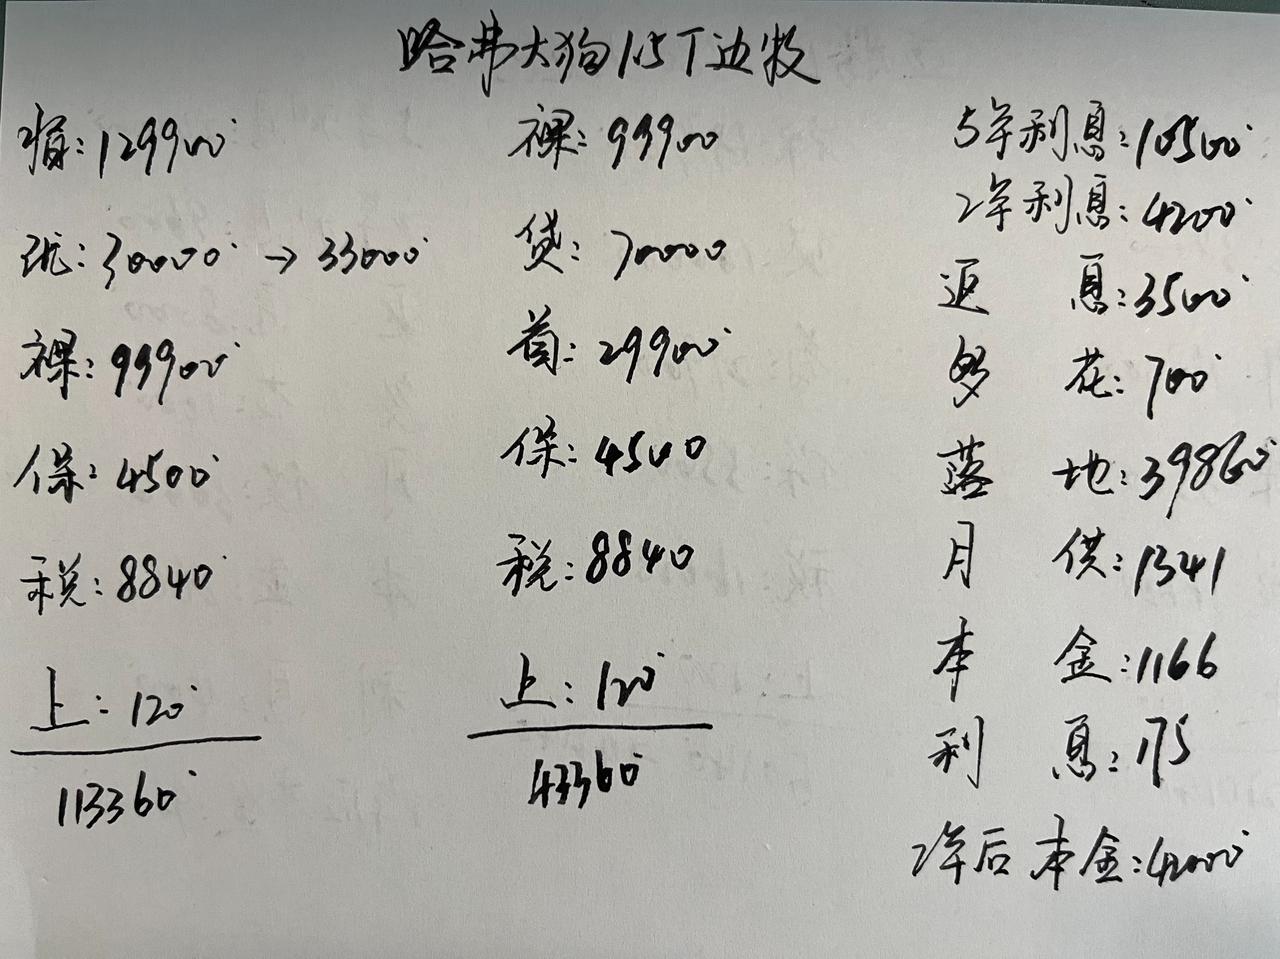 哈弗大狗1.5T边牧
指:129900
优:30000 → 33000
裸:99900
保:4500
税:8840
上:120
113360
裸:99900
贷:70000
首:29900
保:4500
税:8840
上:120
43360
5年利息:10500
2年利息:4200
返 息:3500
多 花:700
落 地:39860
月 供:1341
本 金:1166
利 息:175
2年后本金:42000